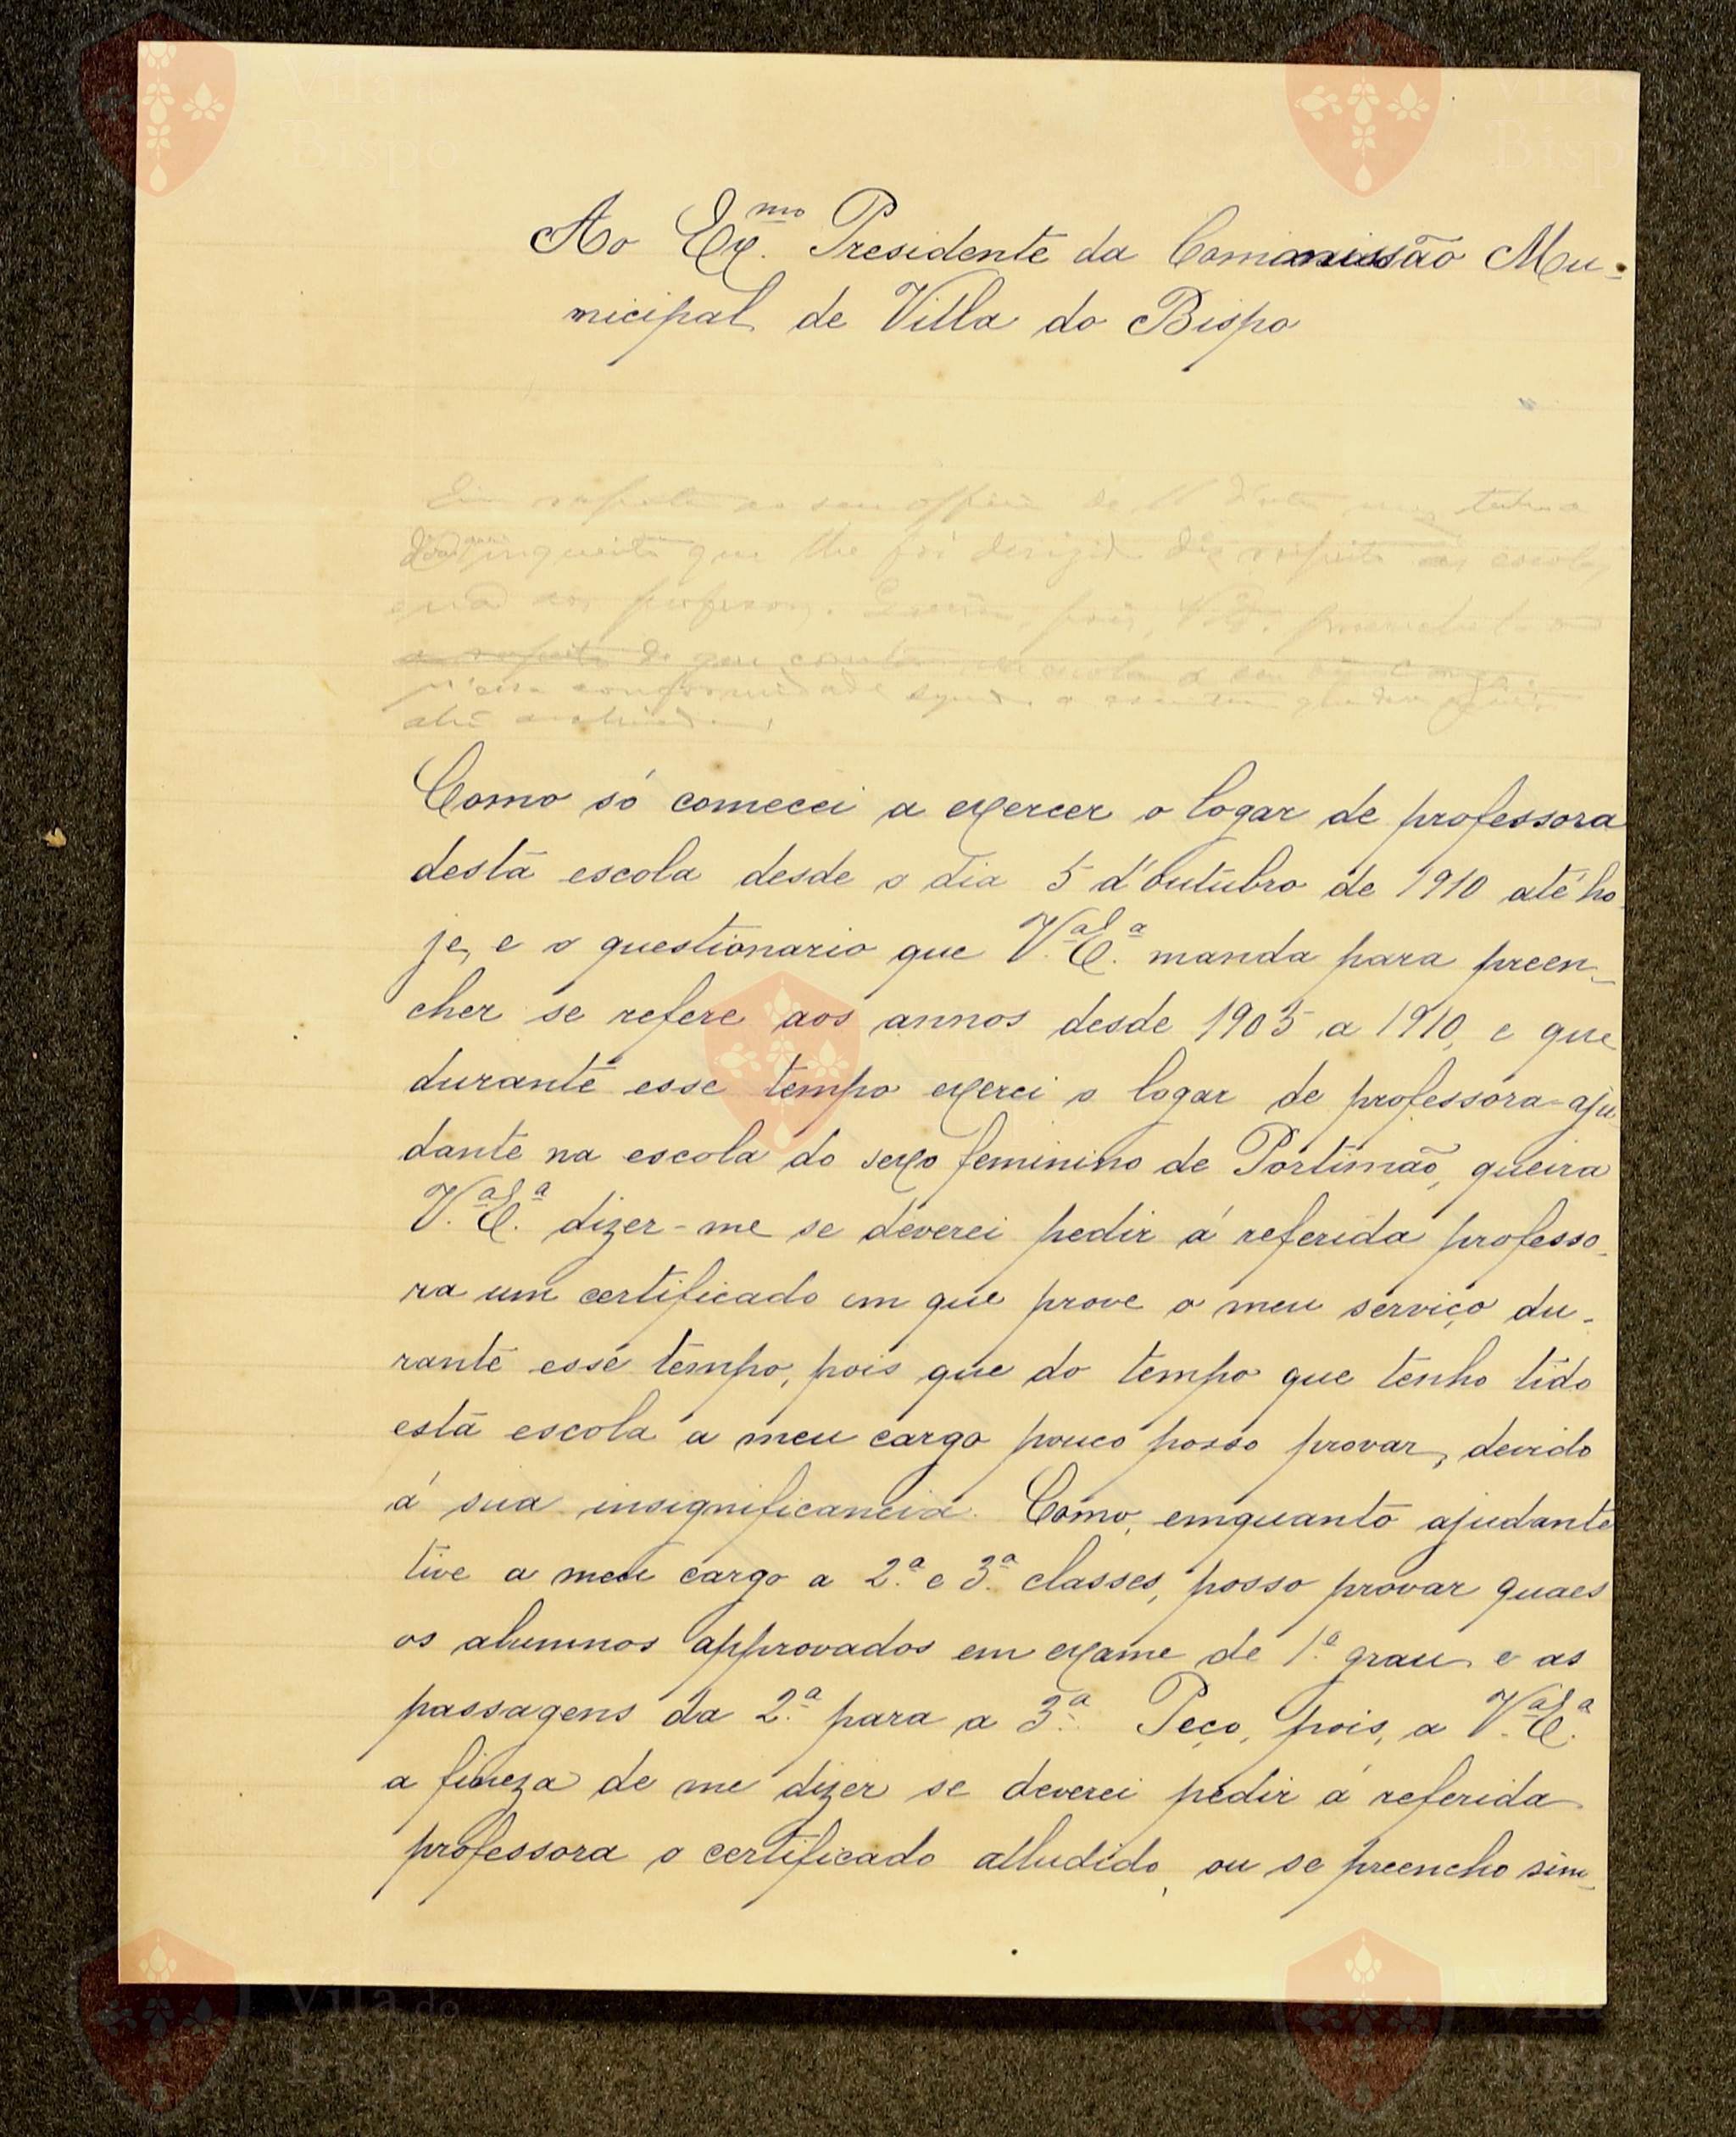 Vila do
Bispo
Vila
Bispo
Ao Ex.mo Presidente da Commissão Mu-
nicipal de Villa do Bispo
seu officio de
inquerito que lhe foi dirigido diz respeito ás escolas
e não aos professores. pois, V. Exª.
n'essa conformidade
Como só comecei a exercer o logar de professora
desta escola desde o dia 5 d'Outubro de 1910 até ho-
je, e o questionario que V.ª Ex.ª manda para preen-
cher se refere aos annos desde 1905 a 1910, e que
durante esse tempo exerci o logar de professora-aju-
dante na escola do sexo feminino de Portimão, queira
V.ª Ex.ª dizer-me se deverei pedir á referida professo-
ra um certificado em que prove o meu serviço du-
rante esse tempo, pois que do tempo que tenho tido
esta escola a meu cargo pouco posso provar, devido
á sua insignificancia. Como, emquanto ajudante
tive a meu cargo a 2.ª e 3.ª classes, posso provar quaes
os alumnos approvados em exame de 1.º grau e as
passagens da 2.ª para a 3.ª. Peço, pois, a V.ª Ex.ª
a fineza de me dizer se deverei pedir á referida
professora o certificado alludido, ou se preencho sim-
Vila do
Bispo
Vila
Bispo